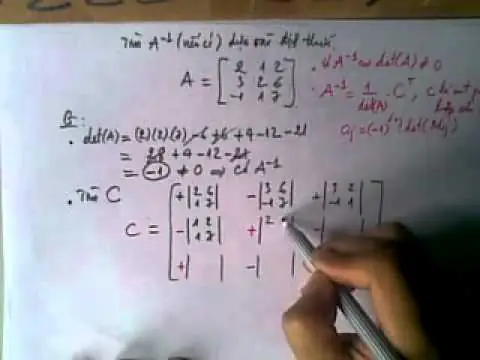 Tìm A⁻¹ (nếu có) dựa vào định thức
A = [2 1 2; 3 2 6; -1 1 7]
. ∃ A⁻¹ ⇔ det(A) ≠ 0
. A⁻¹ = 1/det(A) · Cᵀ, C
det(A) = (2)(2)(7) - 6 + 6 + 4 - 12 - 21
= 28 + 4 - 12 - 21
= -1 ≠ 0 ⇒ ∃ A⁻¹
. Tìm C
C = [+|2 6; 1 7| -|3 6; -1 7| +|3 2; -1 1|; -|1 2; 1 7| +|2 -| |; +| | -| |